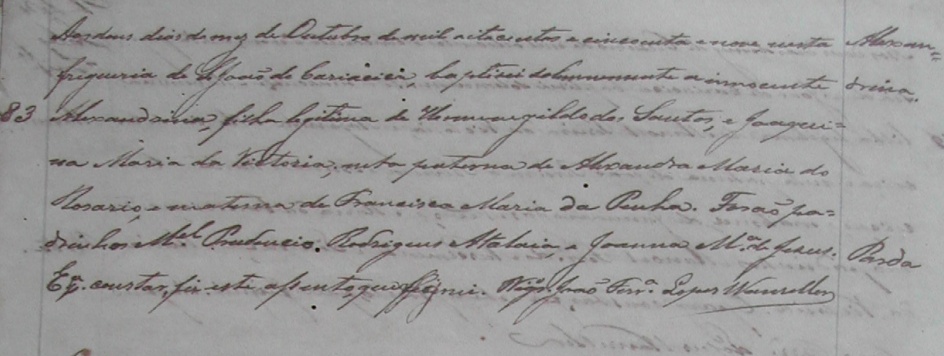 Aos dous dias do mez de Outubro de mil oitocentos e cincoenta e nove nesta Alexan=
freguezia de S. João de Cariacica, baptizei solemnemente a innocente drina.
83 Alexandrina, filha legitima de Hermenegildo dos Santos, e Joaqui=
na Maria da Victoria, neta paterna de Alexandra Maria do
Rosario, e materna de Francisca Maria da Penha. Forão pa=
drinhos Mel. Prudencio Rodrigues Atalaia, e Joanna Ma. de Jesus. Parda
E pa. constar, fiz este assento, que assignei. Vigro. João Ferra. Lopes Wanzeller